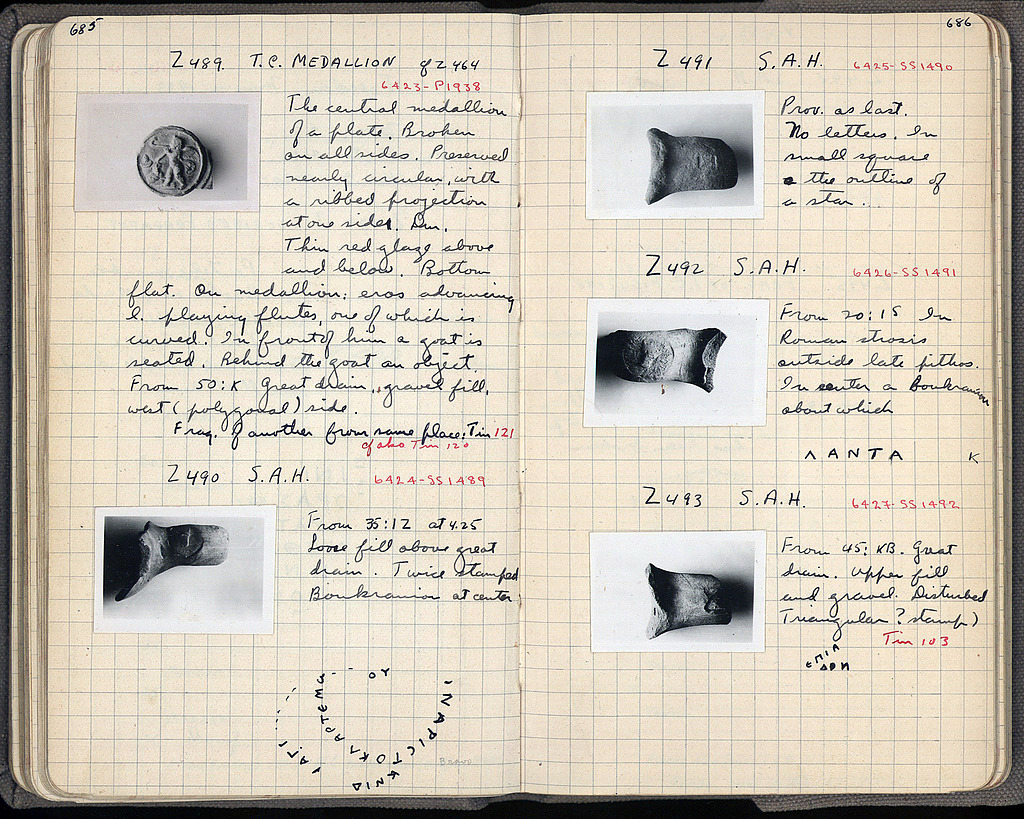 685
Z 489. T.C. MEDALLION of Z 464
6423-P1938
The central medallion
of a plate. Broken
on all sides. Preserved
nearly circular, with
a ribbed projection
at one side. Dm.
Thin red glaze above
and below. Bottom
flat. On medallion: eros advancing
l. playing flutes, one of which is
curved. In front of him a goat is
seated. Behind the goat an object.
From 50:K Great drain, gravel fill,
west (polygonal) side.
Frag. of another from same place: Tin 121
cf also Tin 120
Z 490 S.A.H.
6424-SS1489
From 35:IZ at 4.25
Loose fill above great
drain. Twice stamped
Boukranion at center
ΟΥ
ΑΡΤΕΜΩ
ΙΝΑΡΙCΤΟΚΛ
ΚΝΙΔ
Bravo
686
Z 491 S.A.H.
6425-SS1490
Prov. as last.
No letters. In
small square
the outline of
a star...
Z 492 S.A.H.
6426-SS1491
From 20:15 In
Roman strosis
outside late pithos.
In center a Boukranion
about which
ΛΑΝΤΑ Κ
Z 493 S.A.H.
6427-SS1492
From 45:KB. Great
drain. Upper fill
and gravel. Disturbed
Triangular? stamp)
Tin 103
ΕΠΙΑ
ΔΩΝ